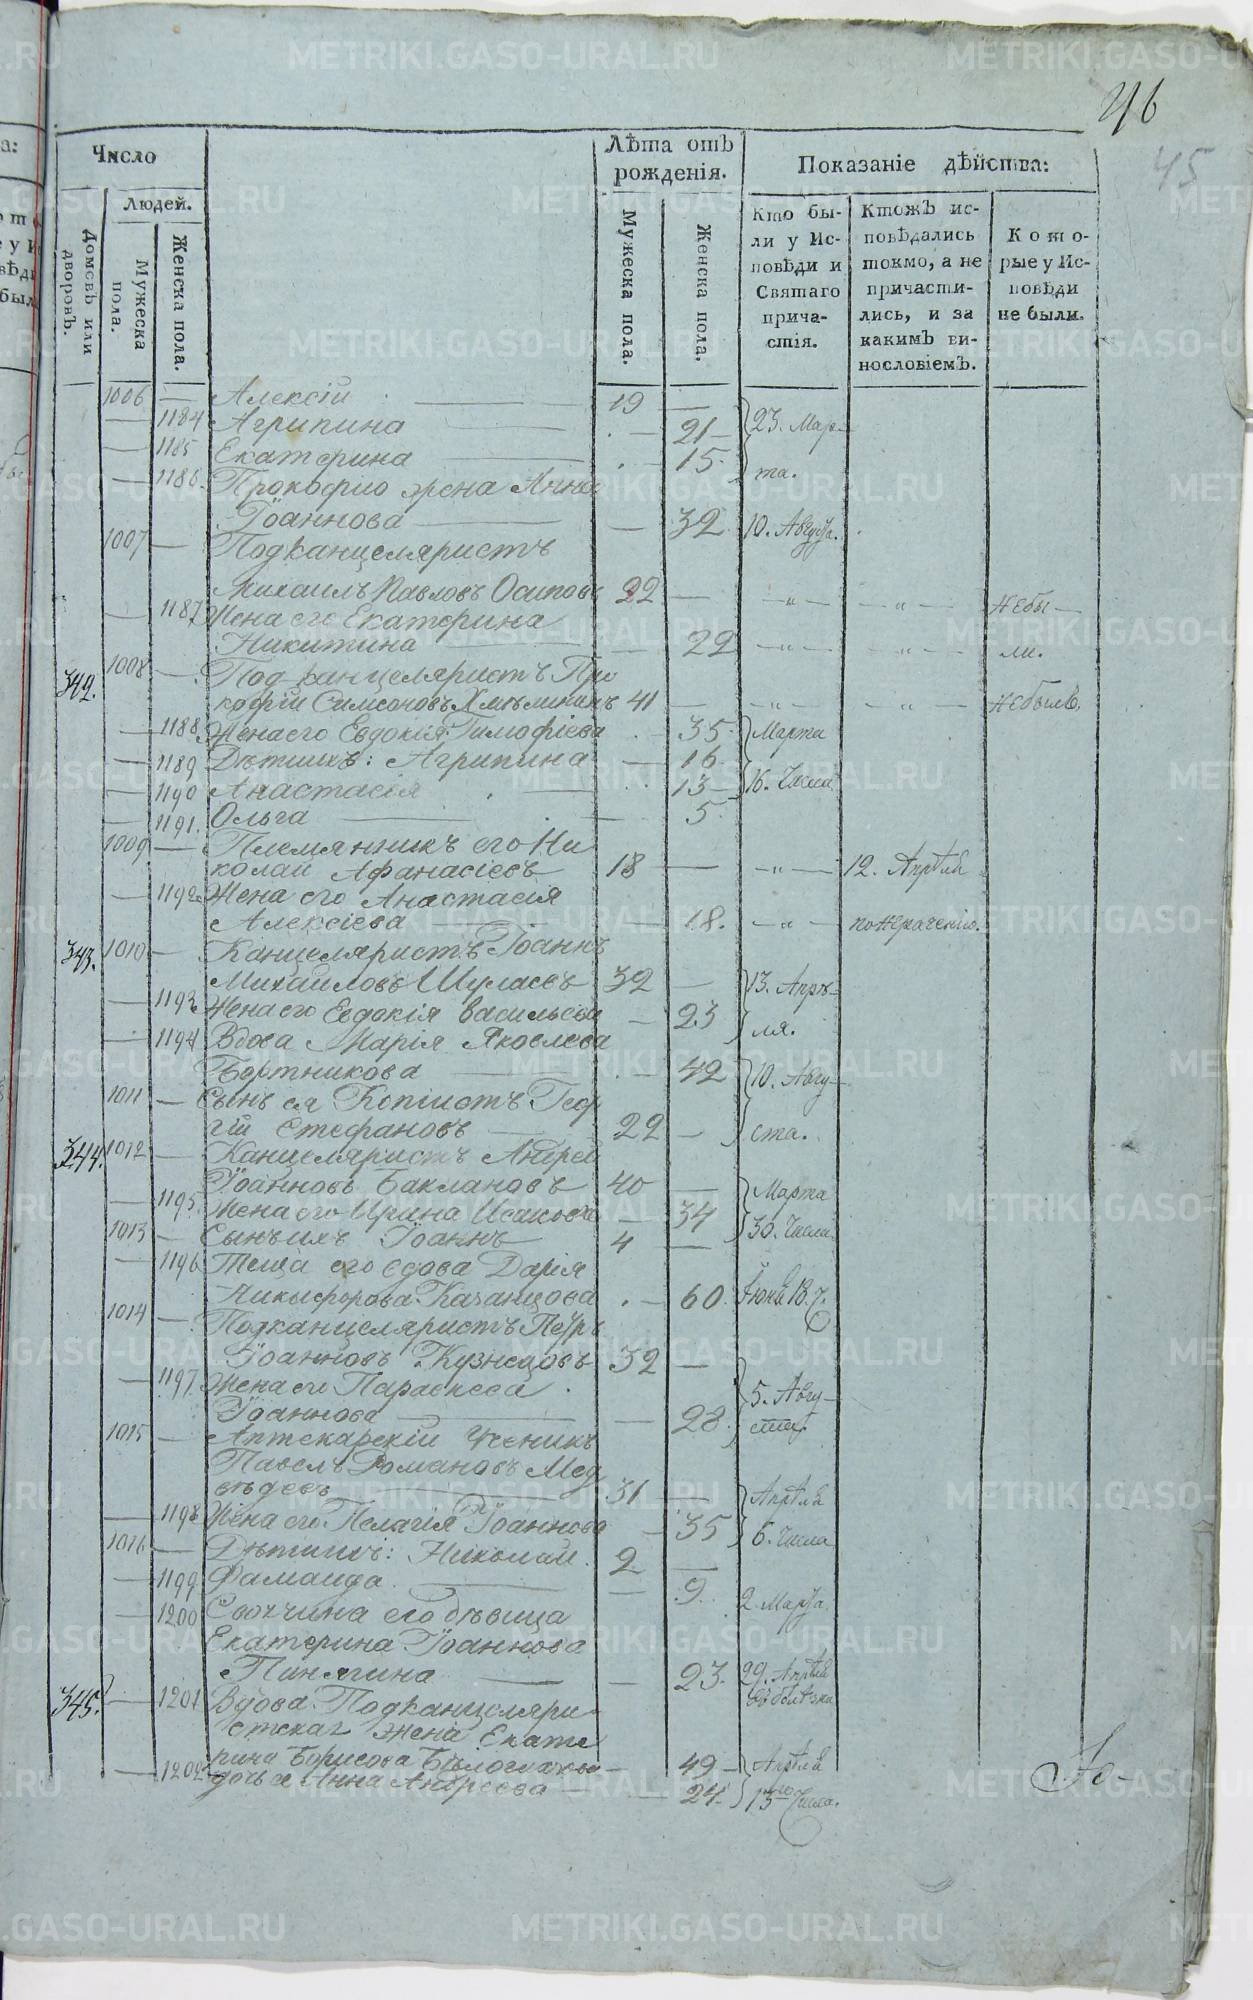 46
45
Число
Лѣта отъ рожденія.
Показаніе дѣйства:
Домовъ или дворовъ.
Людей.
Мужеска пола.
Женска пола.
Мужеска пола.
Женска пола.
Кто были у Исповѣди и Святаго причастія.
Ктожъ исповѣдались токмо, а не причастились, и за какимъ винословіемъ.
Которые у Исповѣди не были.
1006 — Алексій — 19 —
— 1184 Агрипина — 21 — 23. Мар-
— 1185 Екатерина — 15 та.
— 1186. Прокофию жена Анна
Іоаннова — 32. 10. Августа.
1007 — Подканцеляристъ
Михаилъ Павловъ Осиповъ 22 — —„— —„— небы-
— 1187 Жена его Екатерина
Никитина — 22 —„— —„— ли.
342. 1008 — Подканцеляристъ Про
кофій Симеоновъ Хмѣлининъ 41 — —„— —„— небылъ.
— 1188 Жена его Евдокія Тимофіева — 35 Марта
— 1189 Дѣти ихъ: Агрипина — 16
— 1190 Анастасія — 13 16. Числа
— 1191. Ольга — 5
1009 — Племянникъ его Ни
колай Афанасіевъ 18 — —„— 12. Апрѣля
— 1192 Жена его Анастасія
Алексіева — 18. —„— по нераченію.
343. 1010 — Канцеляристъ Іоаннъ
Михайловъ Шулаевъ 32 — 13. Апрѣ-
— 1193 Жена его Евдокія Васильева — 23 ля.
— 1194 Вдова Марія Яковлева
Бортникова — 42 10. Авгу-
1011 — Сынъ ея Копіистъ Геор
гій Стефановъ — 22 — ста.
344. 1012 — Канцеляристъ Андрей
Іоанновъ Баклановъ 40 — Марта
— 1195 Жена его Ирина Исакова — 34 30. Числа
1013 — Сынъ ихъ Іоаннъ 4 —
— 1196 Теща его вдова Дарія
Никифорова Качанцова — 60. Іюня 18.
1014 — Подканцеляристъ Петръ
Іоанновъ Кузнецовъ 32 —
— 1197 Жена его Параскева 5. Авгу-
Іоаннова — 28. ста.
1015 — Аптекарскій Ученикъ
Павелъ Романовъ Мед
вѣдевъ 31 — Апрѣля
— 1198 Жена его Пелагія Іоаннова — 35 6. Числа
1016 — Дѣти ихъ: Николай 2 —
— 1199 Фамаида — 9. 2 Марта.
— 1200 Своячина его дѣвица
Екатерина Іоаннова
Пинягина — 23. 29. Апрѣля
345. — 1201 Вдова Подканцеляри-
стская жена Екате
рина Борисова — 49 — Апрѣля
— 1202 дочь ея Анна Андреева — 24 13го Числа.